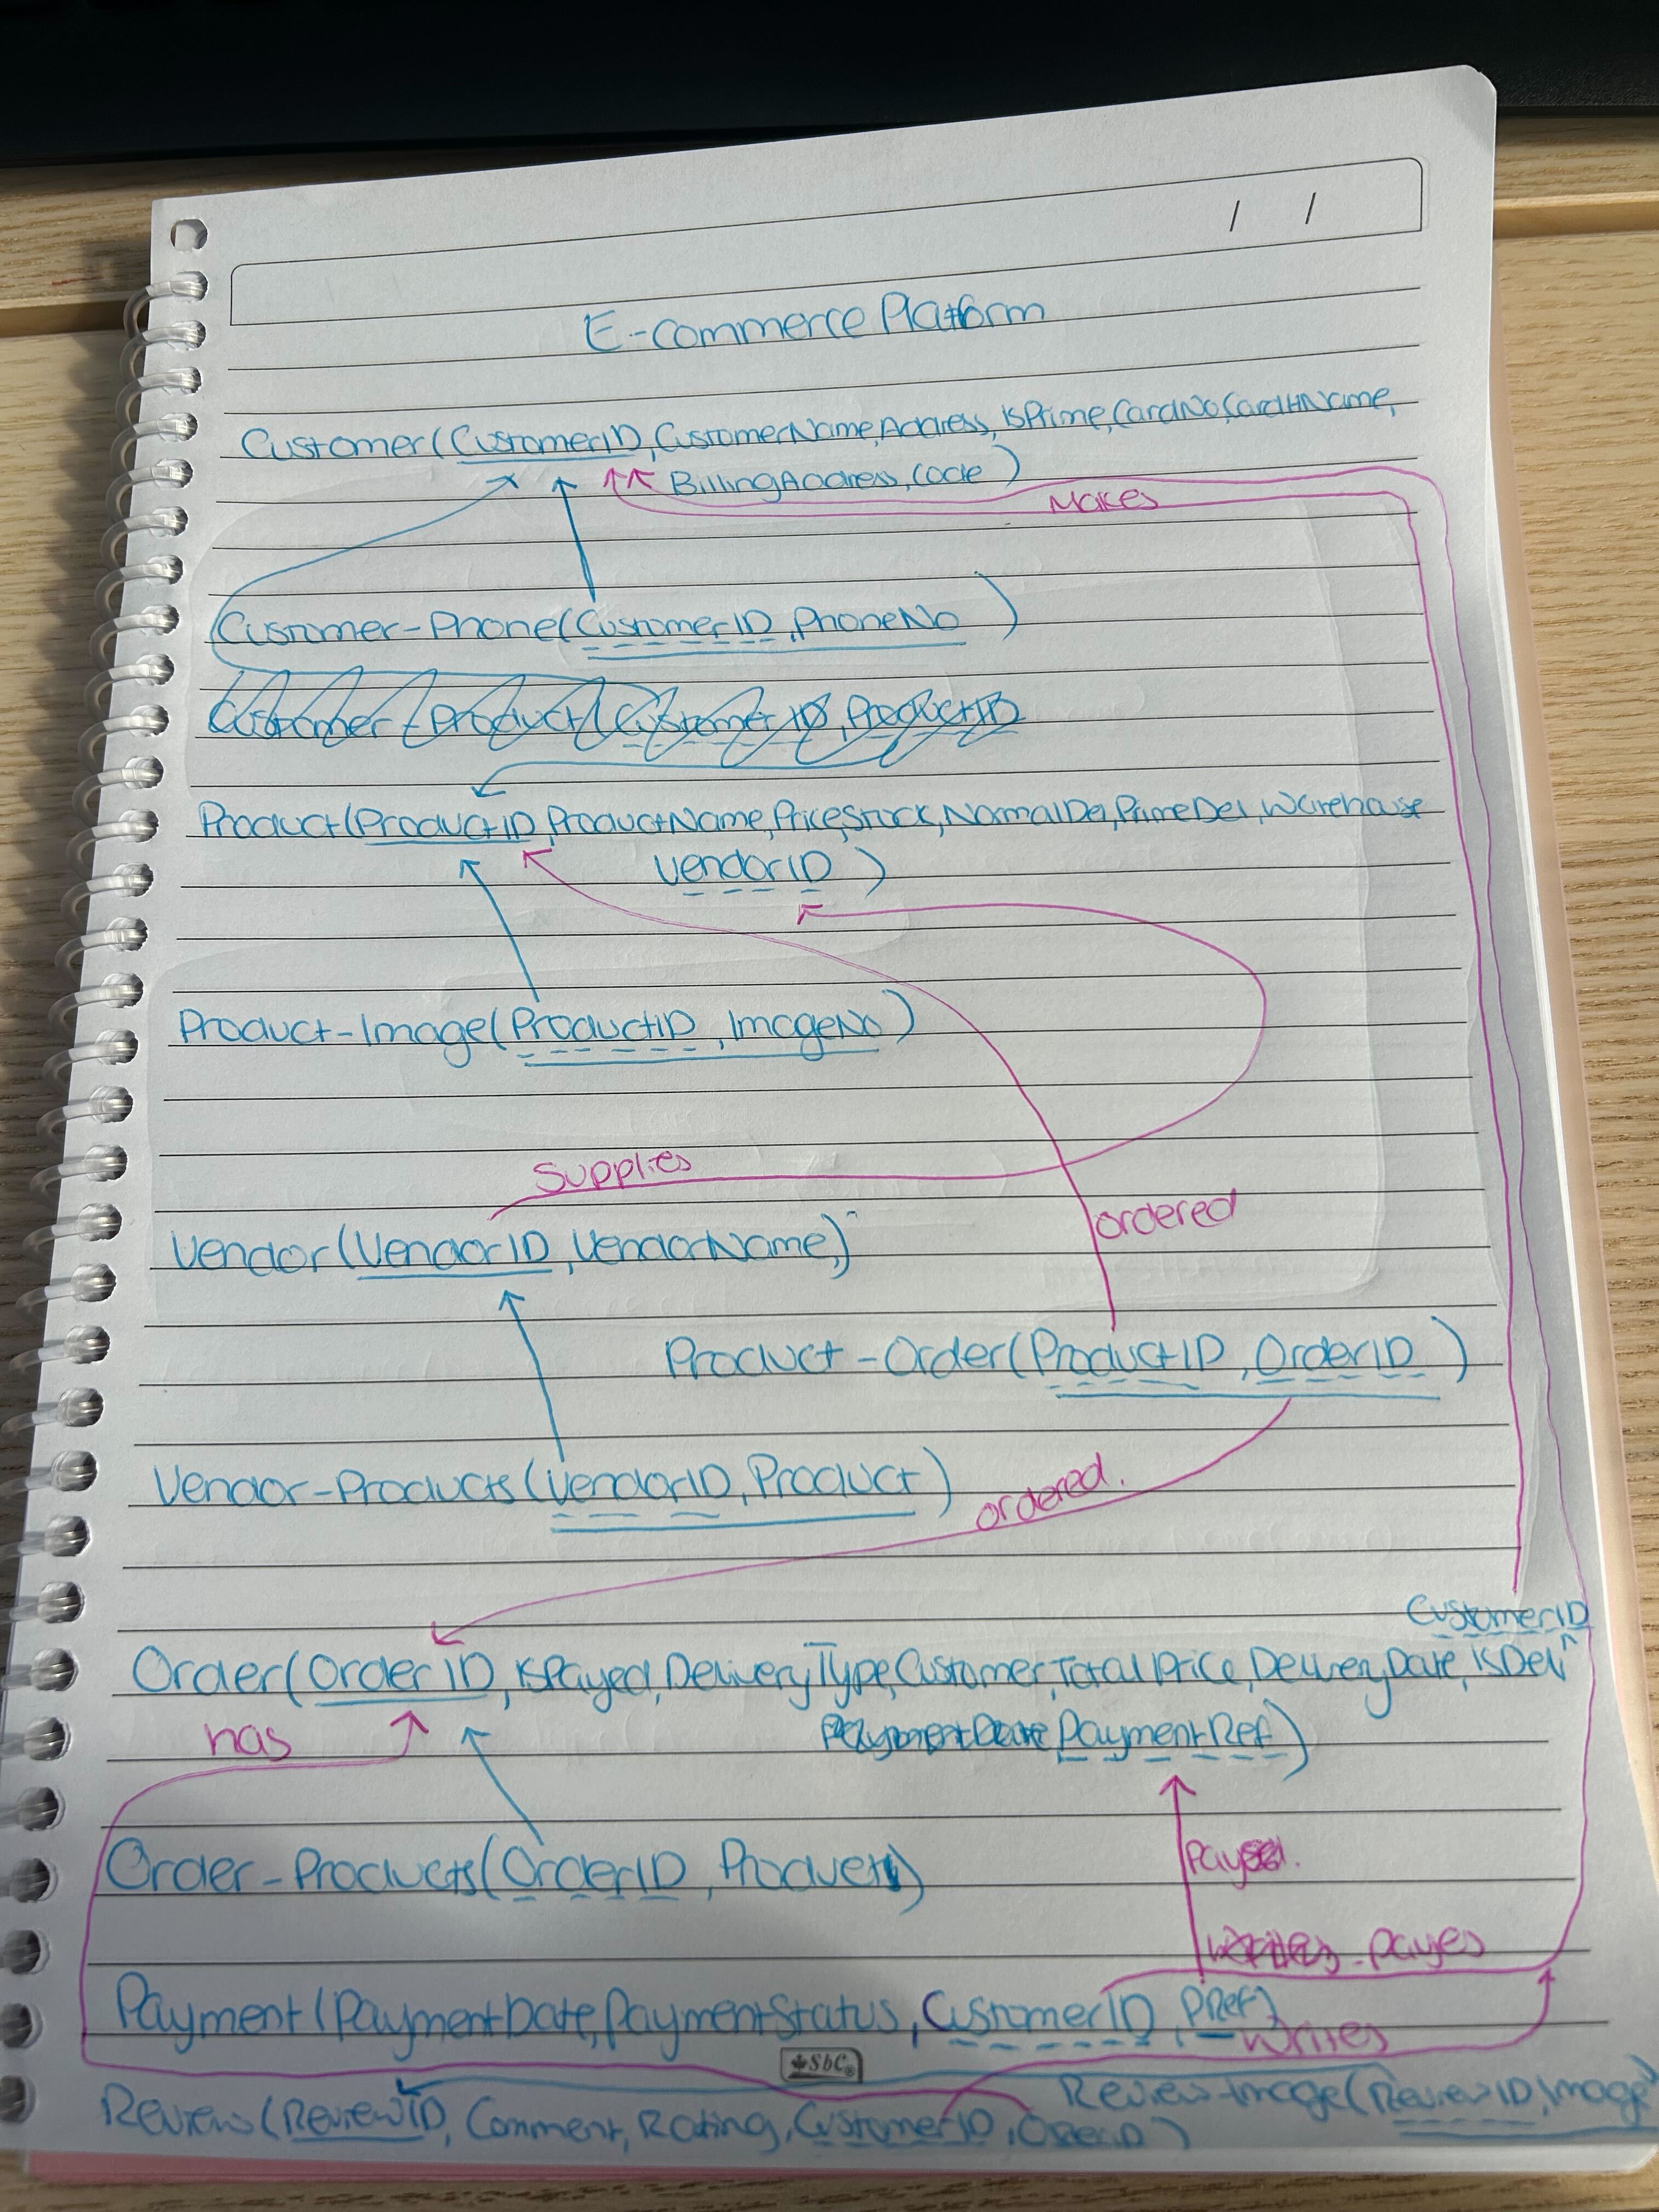 / /
E-commerce Platform
Customer(CustomerID,CustomerName,Address,IsPrime,CardNo,CardHName,
BillingAddress,Code)
Makes
Customer-Phone(CustomerID,PhoneNo)
Customer-Product(CustomerID,ProductID
Product(ProductID,ProductName,Price,Stock,NormalDel,PrimeDel,Warehouse
VendorID)
Product-Image(ProductID,ImageNo)
Supplies
Vendor(VendorID,VendorName,)
ordered
Product-Order(ProductID,OrderID)
Vendor-Products(VendorID,Product)
ordered.
CustomerID
Order(OrderID,IsPayed,DeliveryType,Customer,TotalPrice,DeliveryDate,IsDeli^
has
PaymentDate,PaymentRef)
Order-Products(OrderID,Product)
payes
Payment(PaymentDate,PaymentStatus,CustomerID,PRef)
writes
SbC
Review-Image(ReviewID,Image)
Review(ReviewID,Comment,Rating,CustomerID,OrderID)